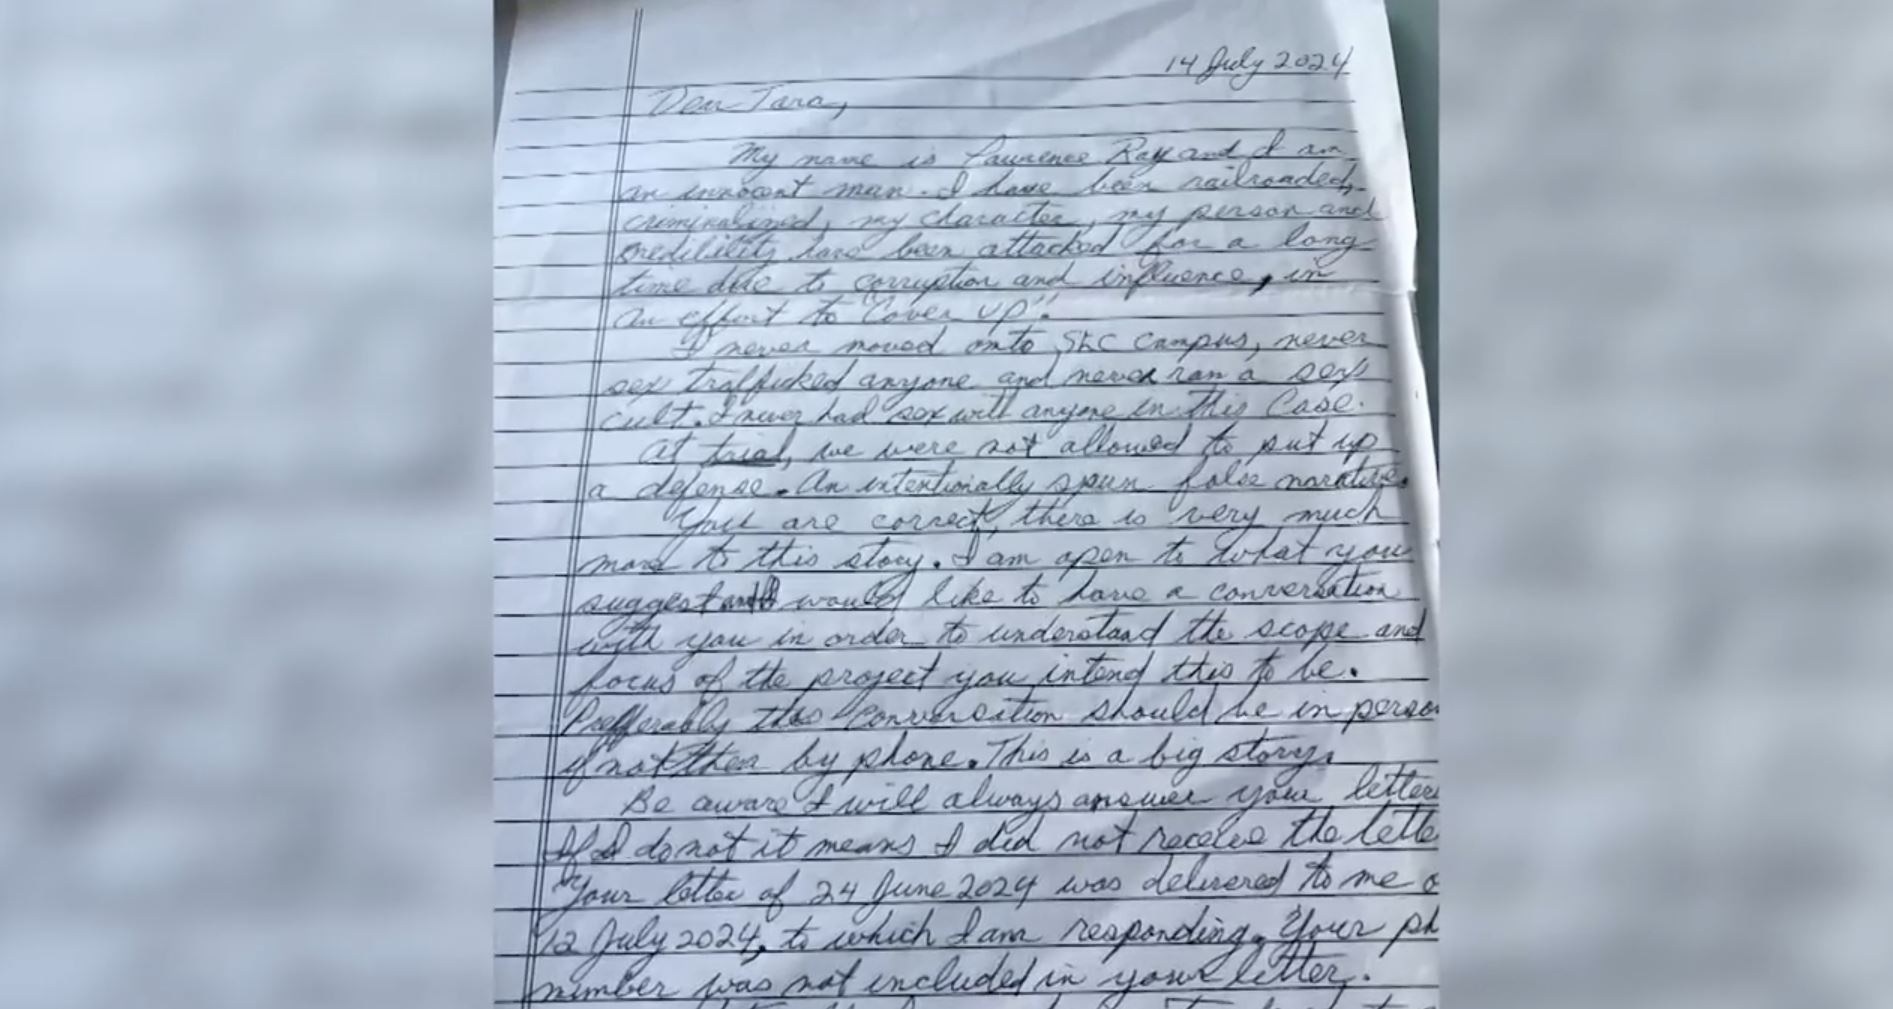 14 July 2024
Dear Tara,
My name is Lawrence Ray and I am
an innocent man. I have been railroaded,
criminalized, my character, my person and
credibility have been attacked for a long
time due to corruption and influence, in
an effort to "Cover up".
I never moved onto SLC campus, never
sex trafficked anyone and never ran a sex
cult. I never had sex with anyone in this Case.
At trial, we were not allowed to put up
a defense. An intentionally spun false narrative.
You are correct, there is very much
more to this story. I am open to what you
suggest and would like to have a conversation
with you in order to understand the scope and
focus of the project you intend this to be.
Prefferably this conversation should be in person
if not then by phone. This is a big story.
Be aware I will always answer your letters
If I do not it means I did not receive the lette
Your letter of 24 June 2024 was delivered to me o
12 July 2024, to which I am responding. Your ph
number was not included in your letter.